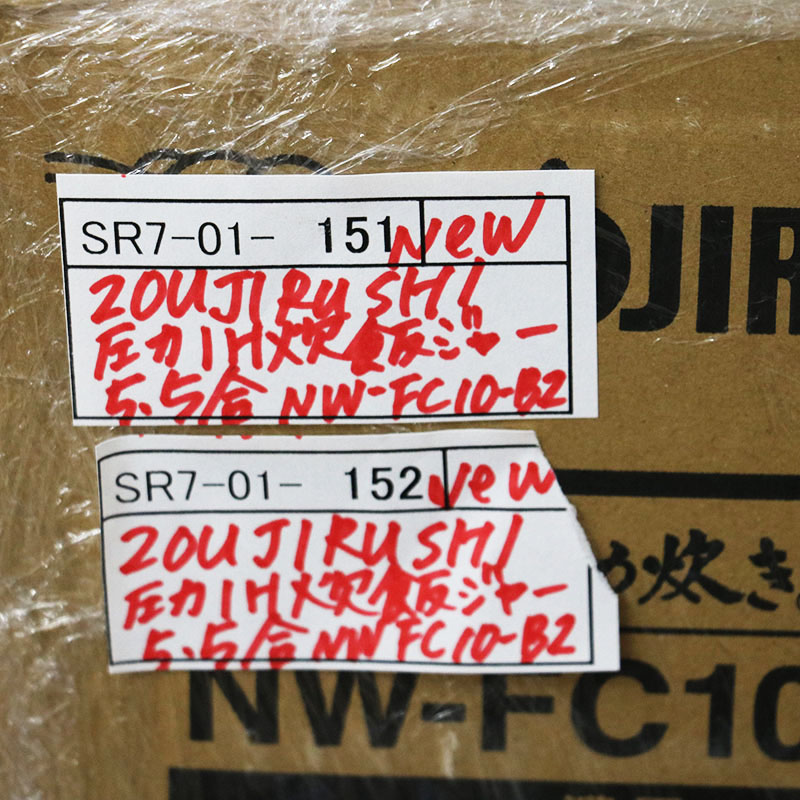 SR7-01- 151 NEW
ZOUJIRUSHI
圧力IH炊飯ジャー
5.5合 NW-FC10-B2
OJIR
SR7-01- 152 New
ZOUJIRUSHI
圧力IH炊飯ジャー
5.5合 NW FC10-B2
炊き
NW-FC10